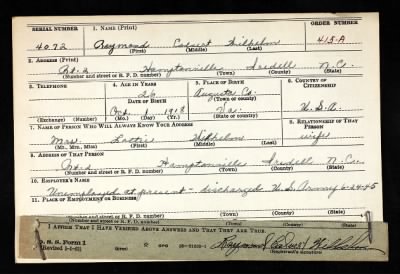 SERIAL NUMBER
1. NAME (Print)
ORDER NUMBER
4072
Raymond Calvert Wilhelm
415-A
(First) (Middle) (Last)
2. ADDRESS (Print)
Rt. 2 Hamptonville Iredell N.C.
(Number and street or R. F. D. number) (Town) (County) (State)
3. TELEPHONE
4. AGE IN YEARS
5. PLACE OF BIRTH
6. COUNTRY OF CITIZENSHIP
26
Augusta Co.
DATE OF BIRTH
1918
Va.
U.S.A.
(Exchange) (Number) (Mo.) (Day) (Yr.) (State)
7. NAME OF PERSON WHO WILL ALWAYS KNOW YOUR ADDRESS
8. RELATIONSHIP OF THAT PERSON
Mrs. Wilhelm wife
(Mr., Mrs., Miss) (First) (Middle) (Last)
9. ADDRESS OF THAT PERSON
Rt. 2 Hamptonville Iredell N.C.
(Number and street or R. F. D. number) (Town) (County) (State)
10. EMPLOYER'S NAME
Unemployed at present - discharged U.S. Army 6-24-45
11. PLACE OF EMPLOYMENT OR BUSINESS
(Number and street or R. F. D. number) (Town) (County) (State)
I AFFIRM THAT I HAVE VERIFIED ABOVE ANSWERS AND THAT THEY ARE TRUE.
D. S. S. Form 1
(Revised
Raymond Calvert Wilhelm
(Registrant's signature)